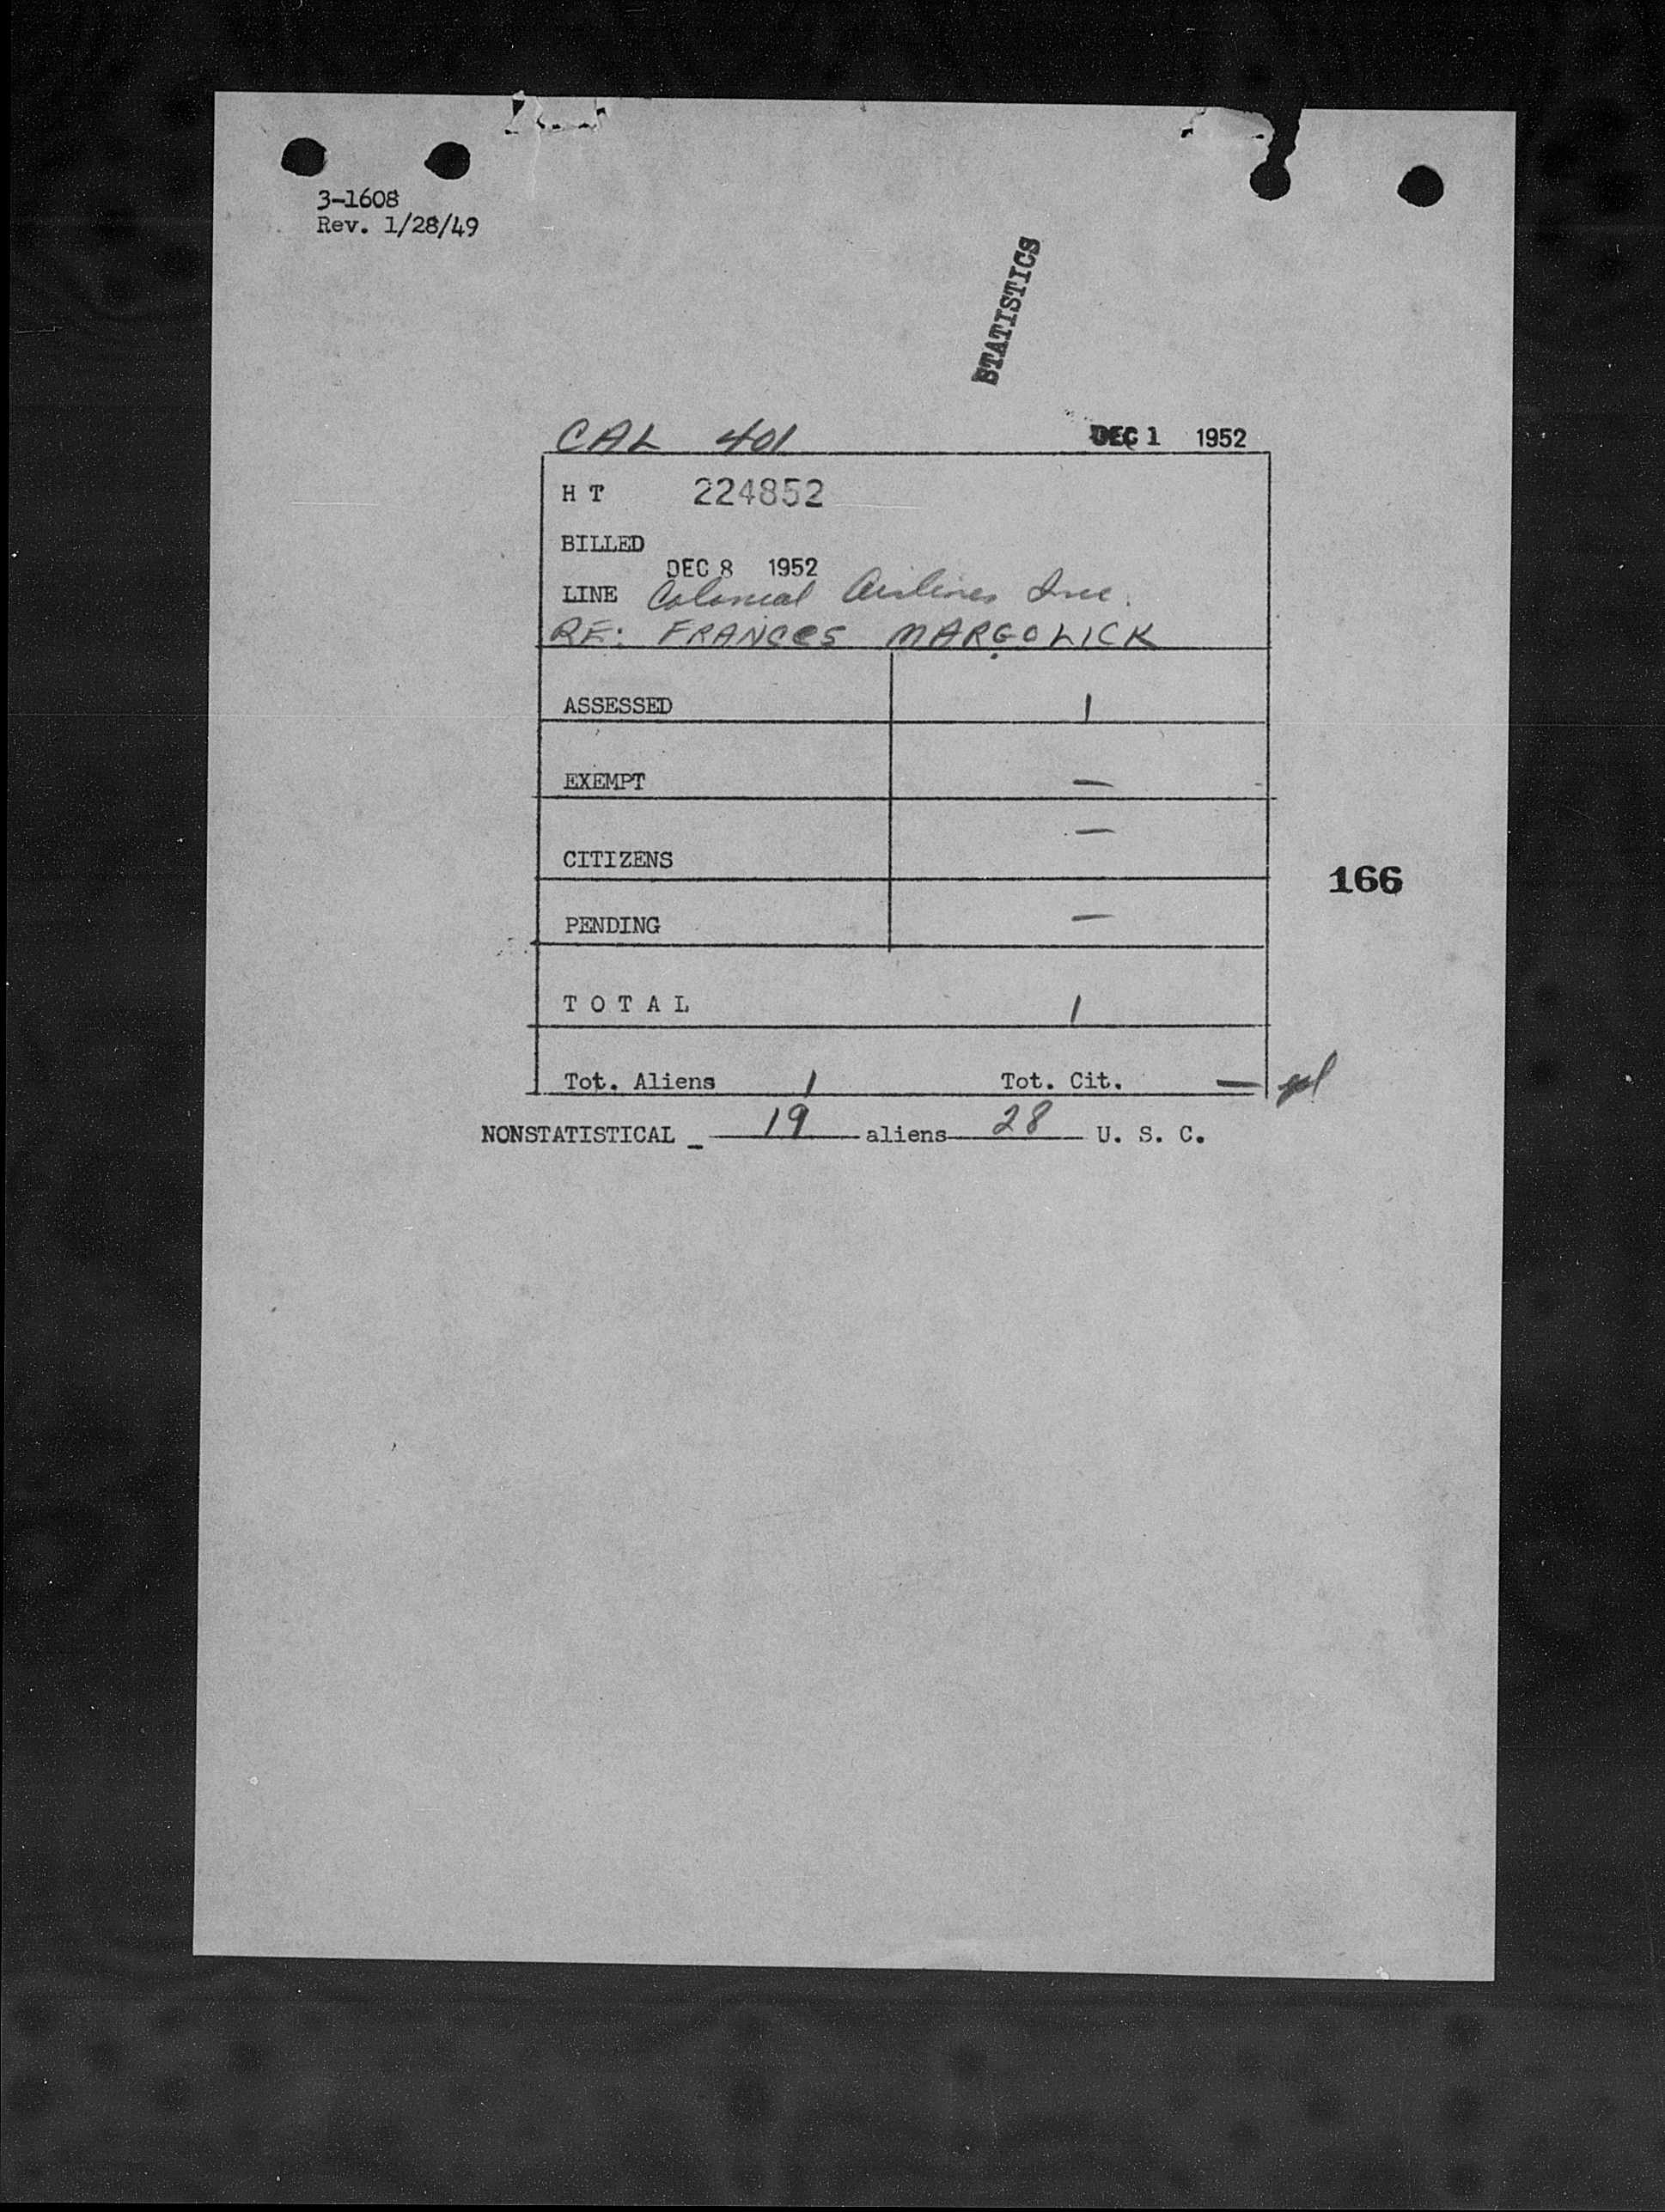 3-1608
Rev. 1/28/49
STATISTICS
CAL 401 DEC 1 1952
H T 224852
BILLED
DEC 8 1952
LINE Colonial Airlines Inc.
RE: FRANCES MARGOLICK
ASSESSED 1
EXEMPT —
CITIZENS —
166
PENDING —
T O T A L 1
Tot. Aliens 1 Tot. Cit. —
NONSTATISTICAL - 19 aliens 28 U. S. C.